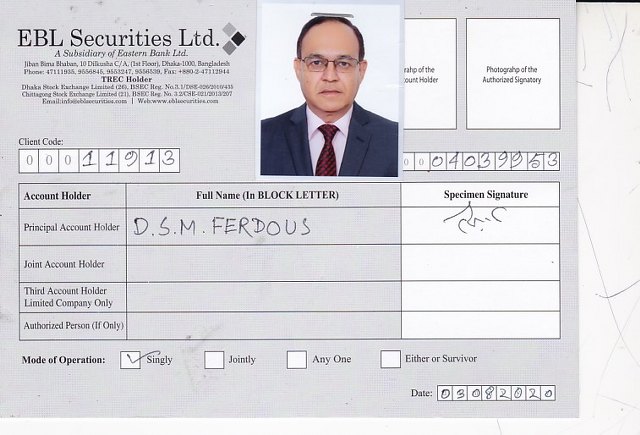 EBL Securities Ltd.
A Subsidiary of Eastern Bank Ltd.
Jiban Bima Bhaban, 10 Dilkusha C/A, (1st Floor), Dhaka-1000, Bangladesh
Phone: 47111935, 9556845, 9553247, 9556539, Fax: +880-2-47112944
TREC Holder
Dhaka Stock Exchange Limited (26), BSEC Reg. No.3.1/DSE-026/2010/435
Chittagong Stock Exchange Limited (21), BSEC Reg. No. 3.2/CSE-021/2013/207
Email:info@eblsecurities.com | Web:www.eblsecurities.com
Photograhp of the
Authorized Signatory
Client Code:
00011913
04039953
Account Holder Full Name (In BLOCK LETTER) Specimen Signature
Principal Account Holder D.S.M. FERDOUS
Joint Account Holder
Third Account Holder
Limited Company Only
Authorized Person (If Only)
Mode of Operation: Singly Jointly Any One Either or Survivor
Date: 03082020